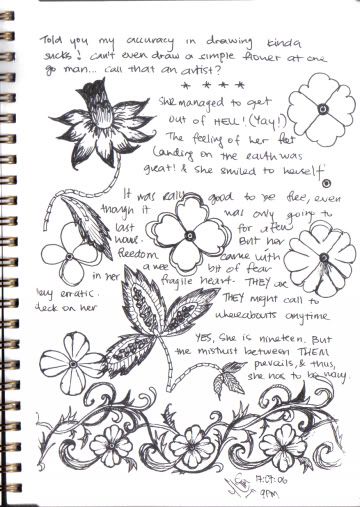 Told you my accuracy in drawing kinda
sucks! Can't even draw a simple flower at one
go man... call that an artist?
* * * *
She managed to get
out of HELL! (Yay!)
The feeling of her feet
landing on the earth was
great! & she smiled to herself
It was really good to be free, even
though it was only going to
last for a few
hours. But her
freedom came with
a wee bit of fear
in her fragile heart. THEY are
very erratic. THEY might call to
check on her whereabouts anytime
YES, she is nineteen. But
the mistrust between THEM
prevails, & thus,
she has to be wary.
17.09.06
9PM